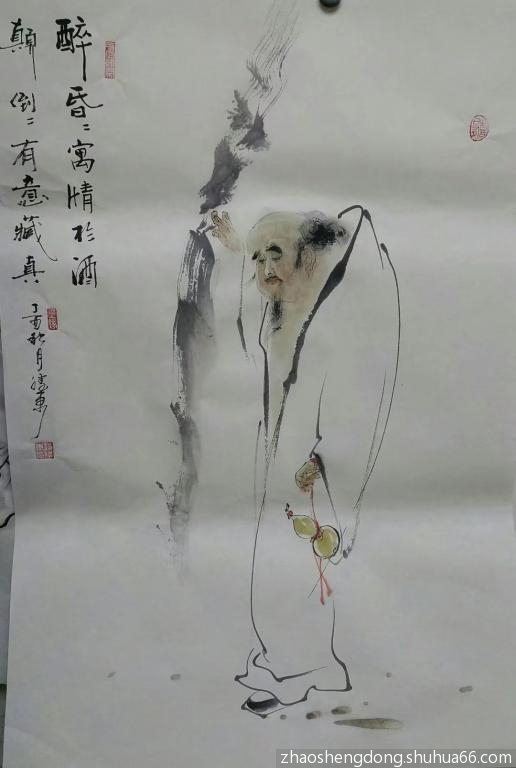 醉昏〻寓情於酒
顛倒〻有意藏真
丁酉秋月勝東
zhaoshengdong.shuhua66.com